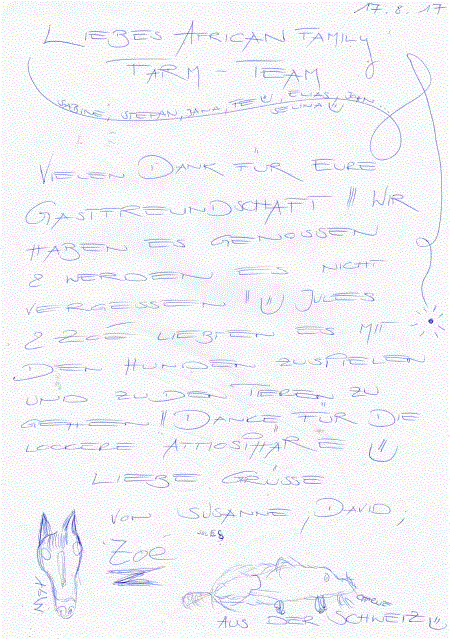 17.8.17
LIEBES AFRICAN FAMILY
FARM-TEAM
SABINE, STEFAN, JANA, ELIAS, JOHN...
SELINA
VIELEN DANK FÜR EURE
GASTFREUNDSCHAFT!! WIR
HABEN ES GENOSSEN
& WERDEN ES NICHT
VERGESSEN!! JULES
& ZOÉ LIEBTEN ES MIT
DEN HUNDEN ZUSPIELEN
UND ZU DEN TIEREN ZU
GEHEN!! DANKE FÜR DIE
LOCKERE ATMOSPHÄRE
LIEBE GRÜSSE
VON SUSANNE, DAVID,
JULES
Zoé
AUS DER SCHWEIZ